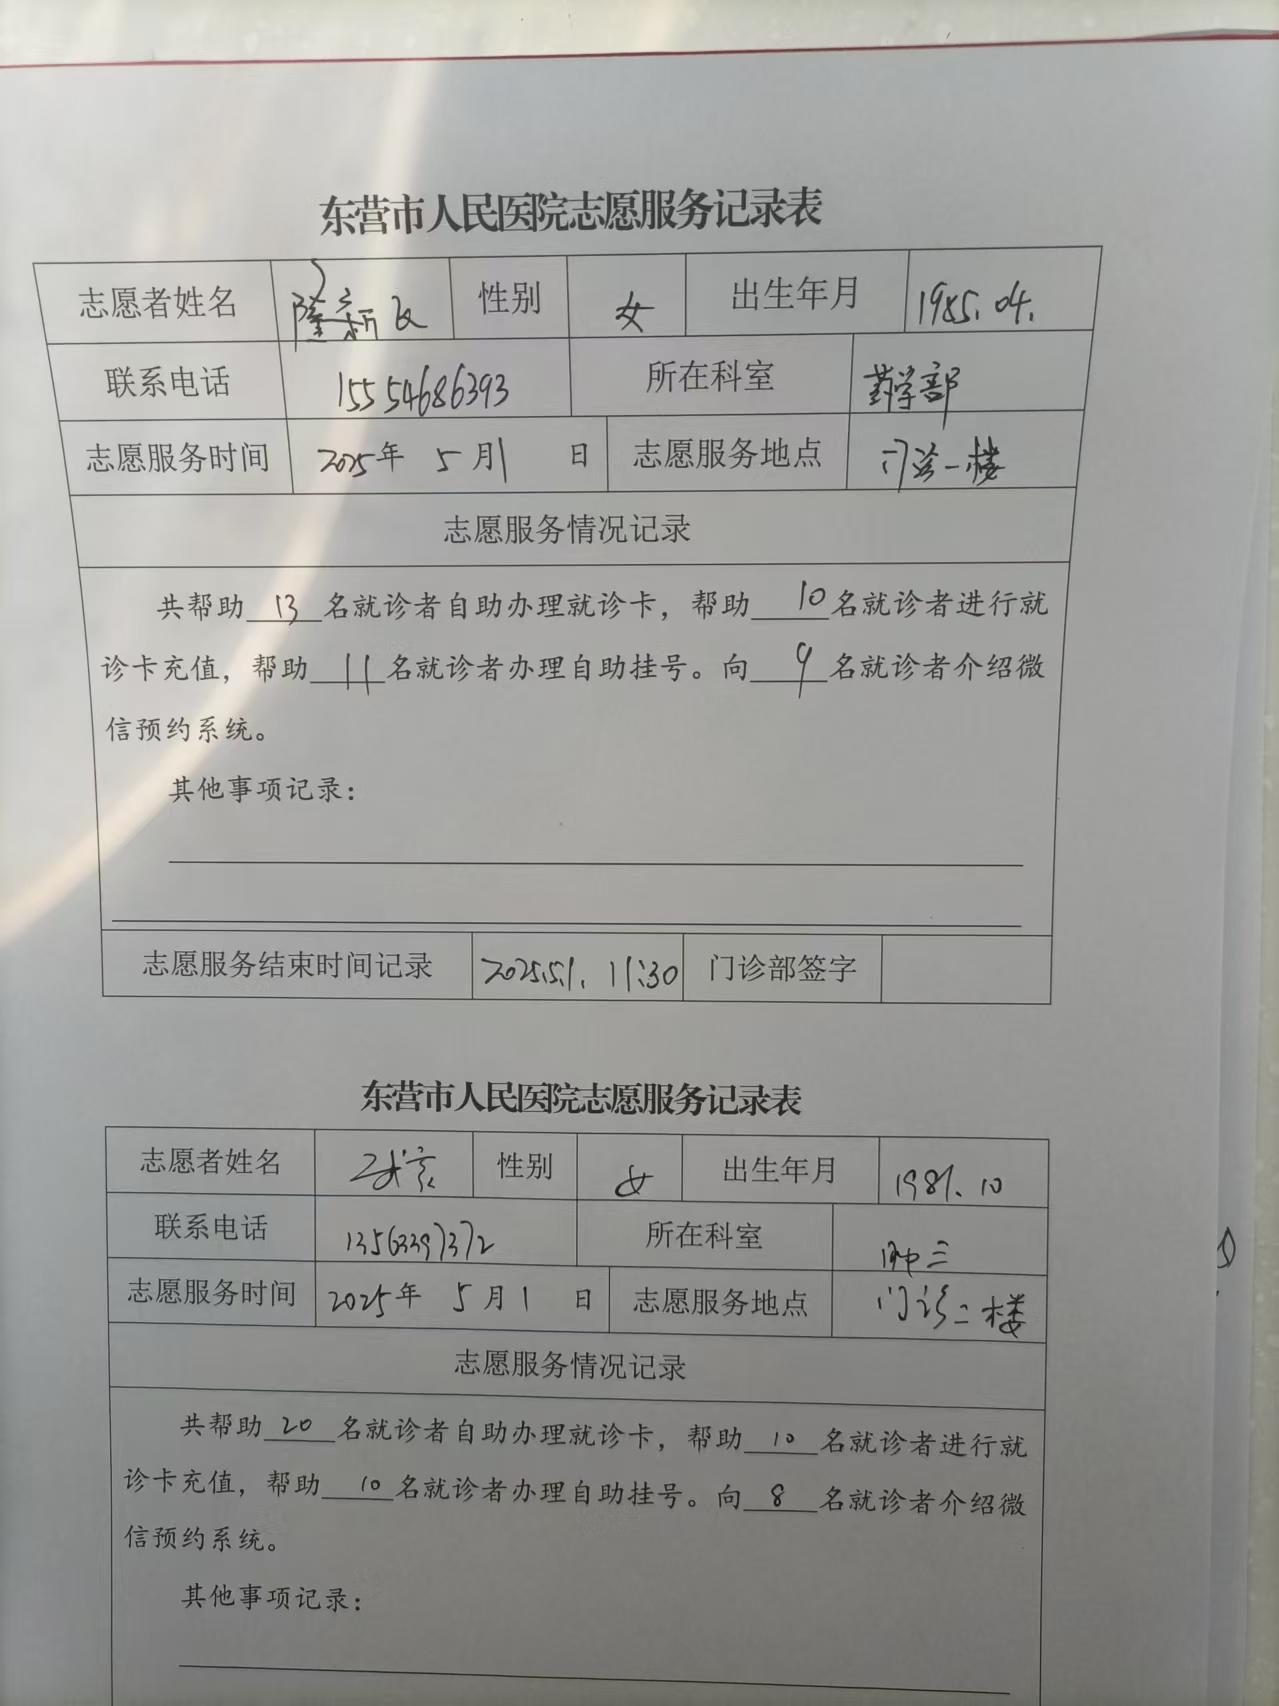 东营市人民医院志愿服务记录表
志愿者姓名 隆新文 性别 女 出生年月 1985.04.
联系电话 15554686393 所在科室 药学部
志愿服务时间 2025年 5月1 日 志愿服务地点 门诊一楼
志愿服务情况记录
共帮助 13 名就诊者自助办理就诊卡，帮助 10 名就诊者进行就
诊卡充值，帮助 11 名就诊者办理自助挂号。向 9 名就诊者介绍微
信预约系统。
其他事项记录：
志愿服务结束时间记录 2025.5.1. 11:30 门诊部签字
东营市人民医院志愿服务记录表
志愿者姓名 性别 女 出生年月
联系电话 13563397372 所在科室
志愿服务时间 2025年 5月1 日 志愿服务地点 门诊二楼
志愿服务情况记录
共帮助 20 名就诊者自助办理就诊卡，帮助 10 名就诊者进行就
诊卡充值，帮助 10 名就诊者办理自助挂号。向 8 名就诊者介绍微
信预约系统。
其他事项记录：